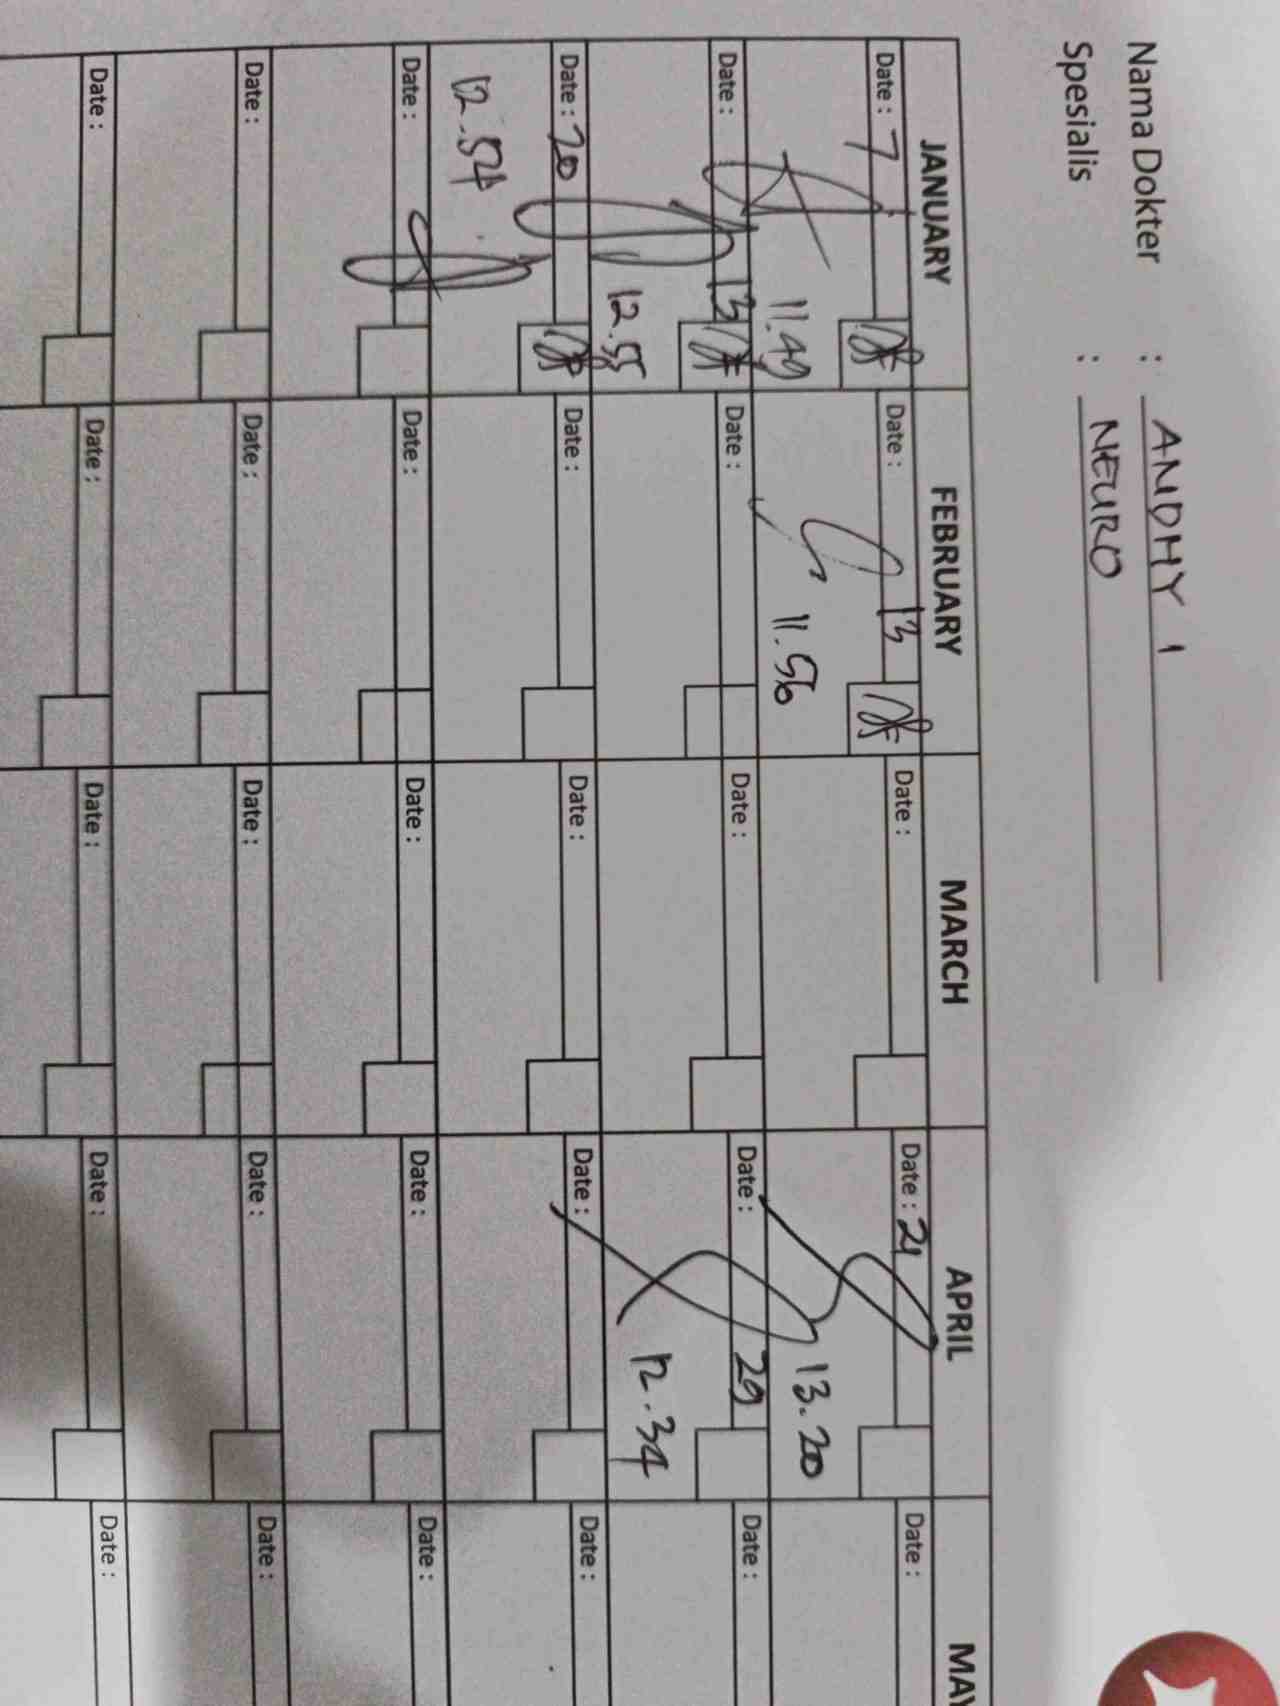 Nama Dokter : ANDHY I
Spesialis : NEURO
JANUARY FEBRUARY MARCH APRIL MAY
Date : 7 Date : 13 Date : Date : 21 Date :
11.49 11.56 13.20
Date : 13 Date : Date : Date : 29 Date :
12.55 12.34
Date : 20 Date : Date : Date : Date :
12.57
Date : Date : Date : Date : Date :
Date : Date : Date : Date : Date :
Date : Date : Date : Date : Date :